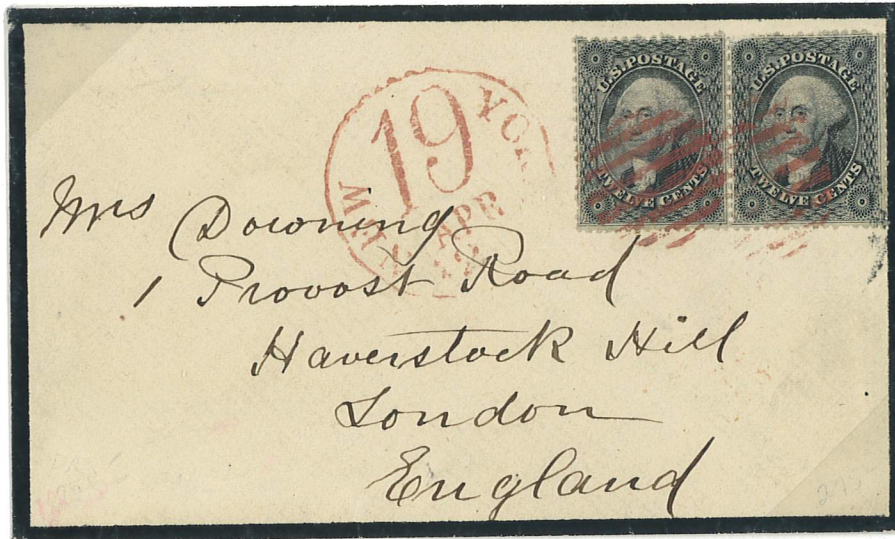 U.S. POSTAGE
TWELVE CENTS
U.S. POSTAGE
TWELVE CENTS
NEW YORK
19
APR
Mrs Downing
1 Provost Road
Haverstock Hill
London
England